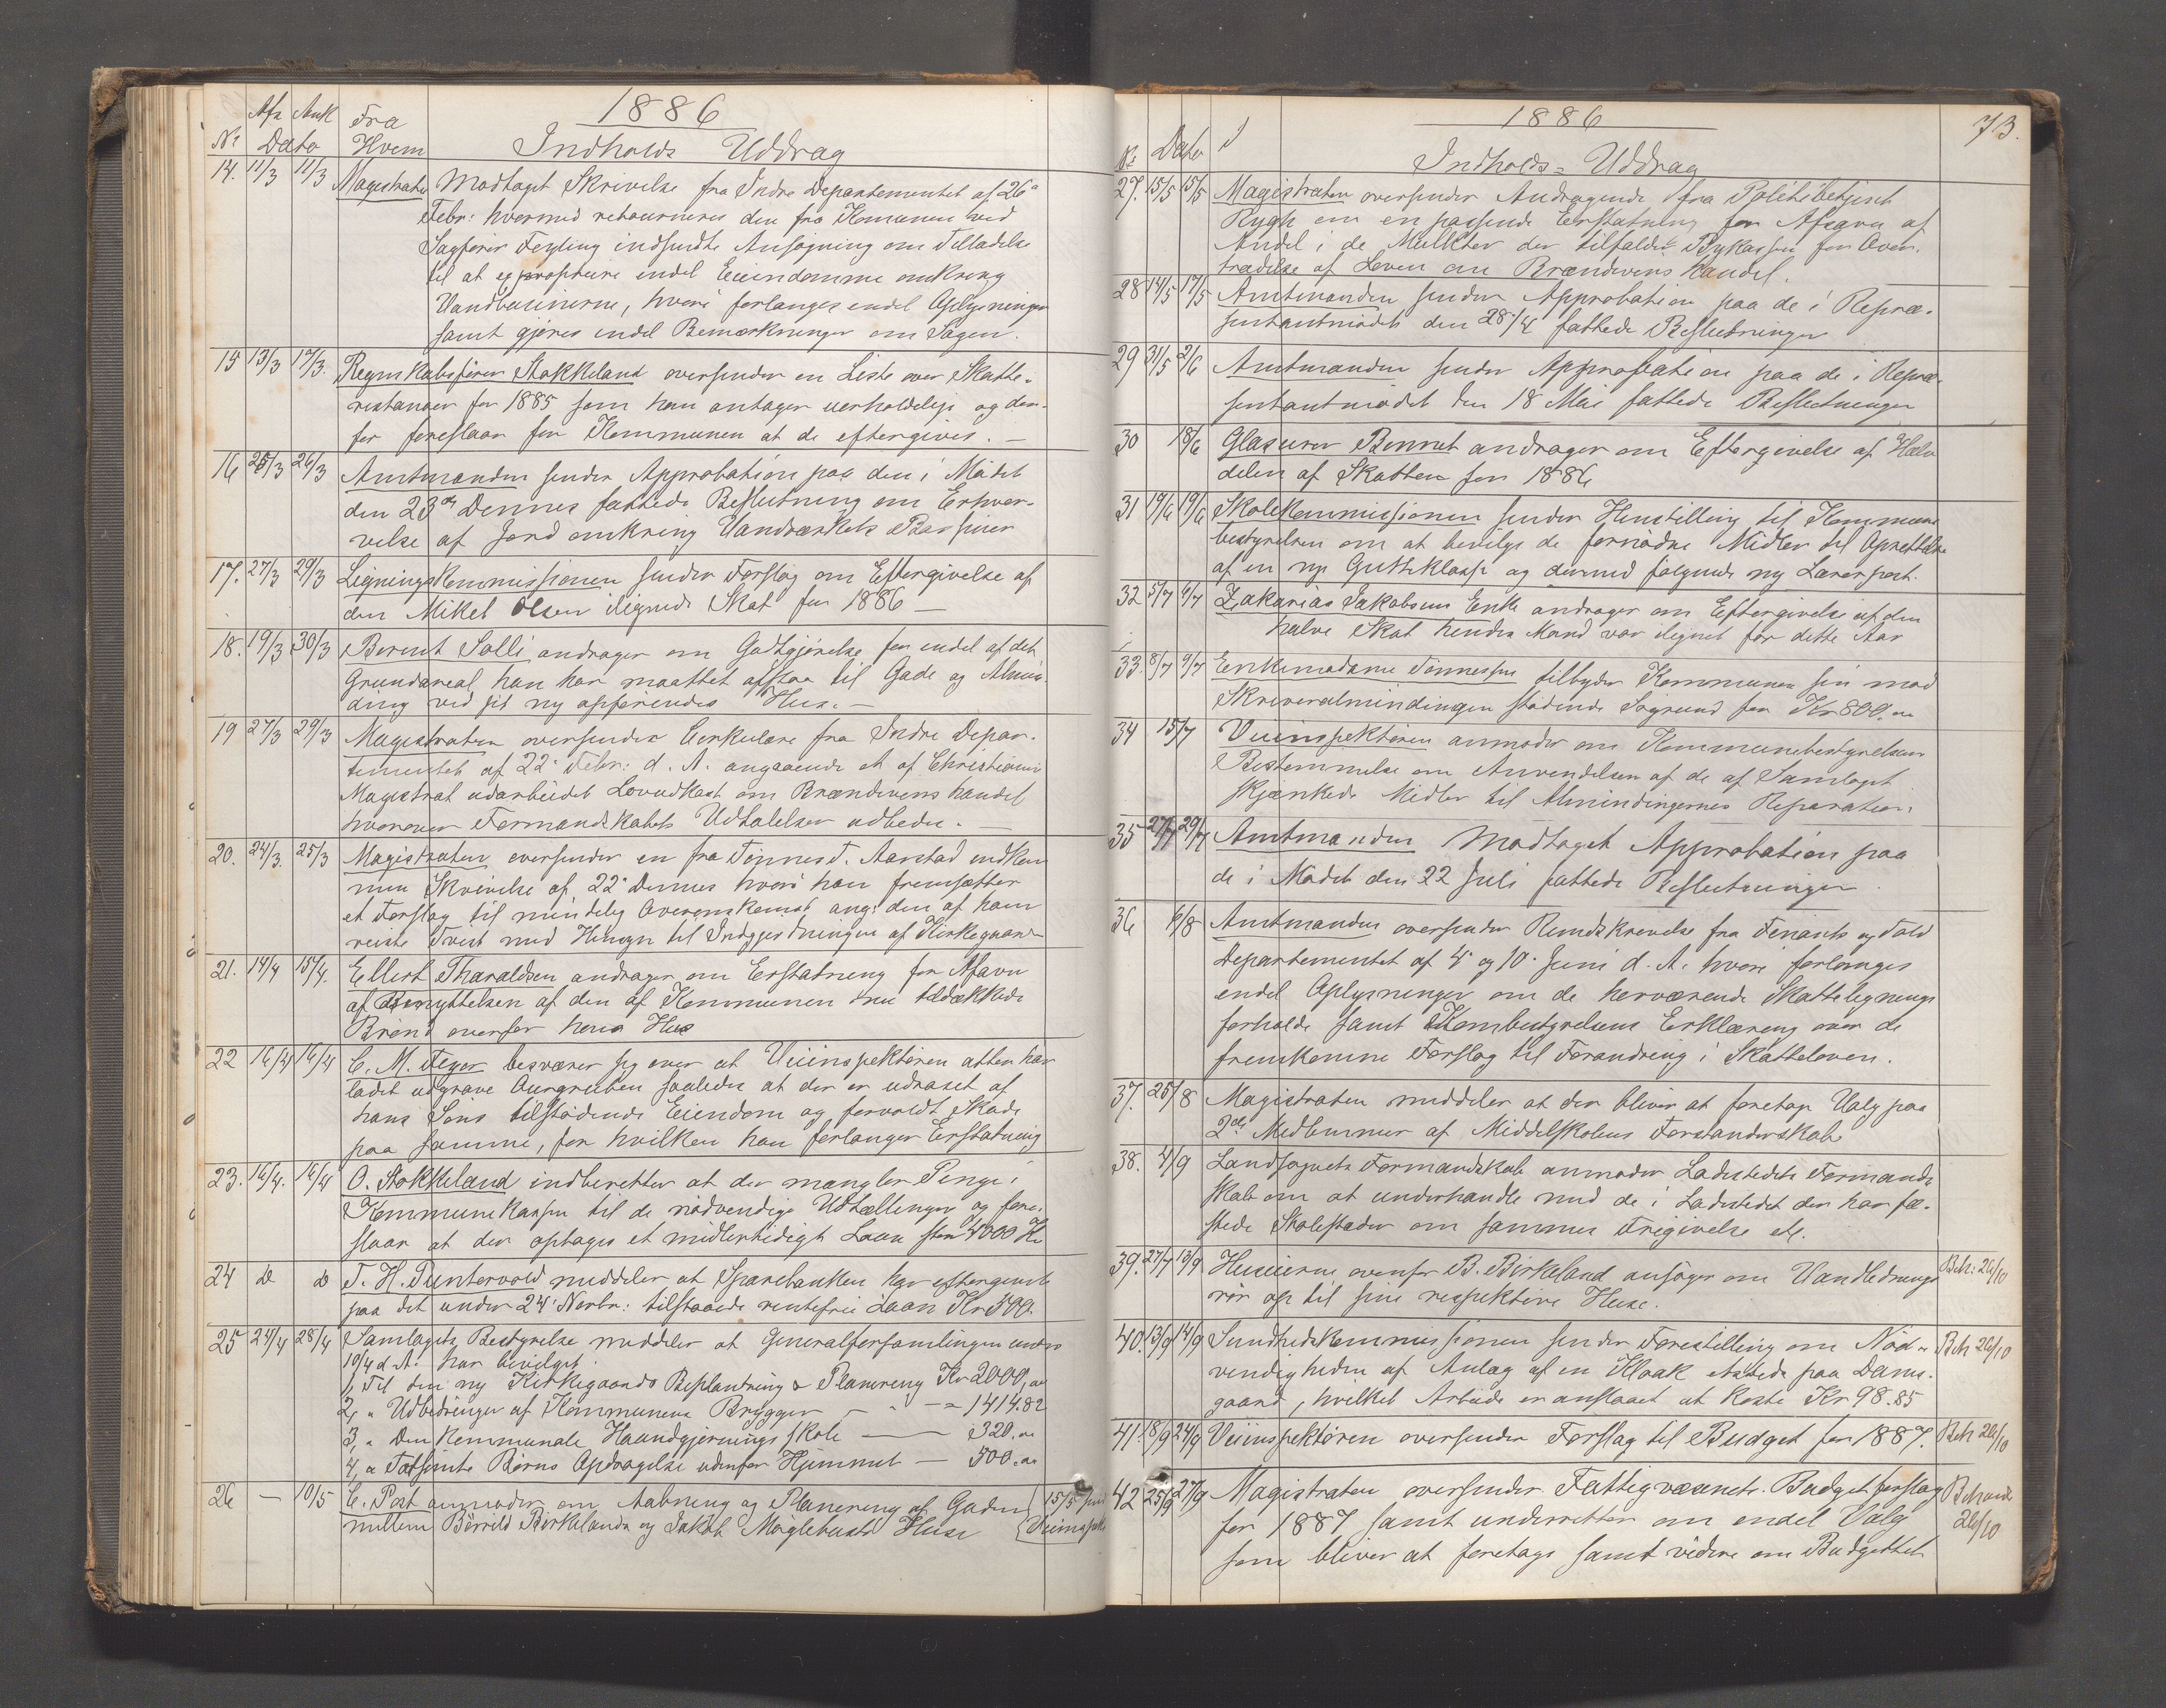 1886
Afs Ank Fra
No Dato Hvem Indholds Uddrag
14. 11/3 11/3 Magistraten Modtaget Skrivelse fra Indre Departementet af 26de
Febr: hvormed retourneres den fra Komunen ved
Sagfører Feyling indsendte Ansøgning om Tilladelse
til at expropriere endel Eiendomme omkring
Vandbasinerne, hvori forlanges endel Oplysninger
samt gjøres endel Bemærkninger om Sagen.
15 13/3 17/3. Regnskabsfører Stokkeland oversender en Liste over Skatte-
restancer for 1885 som han antager uerholdelige og der-
for foreslaar for Kommunen at de eftergives. —
16 25/3 26/3 Amtmanden sender Approbation paa den i Mødet
den 23de Dennes fattede Beslutning om Erhver-
velse af Jord omkring Vandværkets Bassiner
17. 27/3 29/3 Ligningskommissionen sender Forslag om Eftergivelse af
den Mikel Olsen ilignede Skat for 1886 —
18. 19/3 30/3 Berent Salli andrager om Godtgjørelse for endel af det
Grundareal han har maattet afstaa til Gade og Almin-
ding ved sit ny opførendes Hus. —
19 27/3 29/3 Magistraten oversender Cirkulære fra Indre Depar-
tementet af 22' Febr: d. A. angaaende et af Christiania
Magistrat udarbeidet Lovudkast om Brændevinshandel
hvorover Formandskabets Udtalelser udbedes. —
20. 24/3. 25/3 Magistraten oversender en fra Tønnes T. Aarstad indkom
men Skrivelse af 22' Dennes hvori han fremsætter
et Forslag til mindelig Overenskomst ang: den af ham
reiste Tvist med Hensyn til Indgjerdningen af Kirkegaarden
21. 14/4 15/4. Ellert Tharaldsen andrager om Erstatning for Afsavn
af Benyttelsen af den af Kommunen nu tildækkede
Brønd overfor hans Hus
22 16/4 16/4 C. M. Feyer besværer sig over at Veiinspektøren atter har
ladet udgrave Aurgruben saaledes at der er udraset af
hans Søns tilstødende Eiendom og forvoldt Skade
paa samme, for hvilken han forlanger Erstatning
23. 16/4. 16/4 O. Stokkeland indberetter at der mangler Penge i
Kommunekassen til de nødvendige Udtællinger og fore-
slaar at der optages et midlertidigt Laan stort 4000 Kr
24 do do T. H. Puntervold meddeler at Sparebanken har eftergivet
paa det under 24' Novbr: tilstaaede rentefrie Laan Kr 500.
25 24/4 28/4 Samlagets Bestyrelse meddeler at Generalforsamlingen under
10/4 d. A. har bevilget:
1, Til den ny Kirkegaards Beplantning & Planering Kr 2000,00
2, " Udbedringer af Kommunens Brygger — " — " 1414.82
3, " Den Kommunale Haandgjerningsskole — — 320.00
4, " Forsømte Børns Opdragelse udenfor Hjemmet — 500.00
26 — 10/5 E. Post anmoder om Aabning og Planering af Gaden 15/5 sendt
mellem Børrild Birkelands og Jakob Møglebusts Huse Veiinspekt

1886 73.
No Dato Indholds-Uddrag
27. 15/5 15/5 Magistraten oversender Andragende fra Politibetjent
Rygh om en passende Erstatning for Afsavn af
Andel i de Mulkter der tilfalder Bykassen for Over-
trædelse af Loven om Brændevins Handel.
28 14/5 17/5 Amtmanden sender Approbation paa de i Repræ-
sentantmødet den 28/4 fattede Beslutninger
29 31/5 2/6 Amtmanden sender Approbation paa de i Repræ-
sentantmødet den 18 Mai fattede Beslutninger
30 18/6 Glasurer Bennet andrager om Eftergivelse af Halv
delen af Skatten for 1886
31 19/6 19/6 Skolekommissionen sender Henstilling til Kommune
bestyrelsen om at bevilge de fornødne Midler til Oprettelse
af en ny Gutteklasse og dermed følgende ny Lærerpost.
32 5/7 6/7 Zakarias Jakobsens Enke andrager om Eftergivelse af den
halve Skat hendes Mand var ilignet for dette Aar
33. 8/7 9/7 Enkemadame Tønnessen tilbyder Kommunen sin mod
Skriveralmindingen stødende Søgrund for Kr 800.00
34 15/7 Veiinspektøren anmoder om Kommunebestyrelsens
Bestemmelse om Anvendelsen af de af Samlaget
skjænkede Midler til Almindingernes Reparation.
35 27/7 29/7 Amtmanden Modtaget Approbation paa
de i Mødet den 22 Juli fattede Beslutninger.
36 6/8 Amtmanden oversender Rundskrivelse fra Finants og Told
Departementet af 4' og 10' Juni d. A. hvori forlanges
endel Oplysninger om de herværende Skatteligningsforholde
samt Kombestyrelsens Erklæring over de
fremkomne Forslag til Forandring i Skatteloven.
37. 25/8 Magistraten meddeler at der bliver at foretage Valg paa
2de Medlemmer af Middelskolens Forstanderskab
38. 4/9 Landsognets Formandskab anmoder Ladestedets Formand-
skab om at underhandle med de i Ladestedet der har fæ-
stede Skolestader om sammes Frigivelse etc.
39. 27/7 13/9 Huseierne ovenfor B. Birkeland ansøger om Vandlednings Beh: 26/10
rør op til sine respektive Huse.
40. 13/9 14/9 Sundhedskommissionen sender Forestilling om Nød- Beh 26/10
vendigheden af Anlæg af en Kloak etsteds paa Dams-
gaard, hvilket Arbeide er anslaaet at koste Kr 98.85
41 18/9 24/9 Veiinspektøren oversender Forslag til Budget for 1887. Beh 26/10
42 25/9 27/9 Magistraten oversender Fattigvæsenets Budgetforslag Behandl
for 1887 samt underretter om endel Valg 26/10
som bliver at foretage samt videre om Budgettet